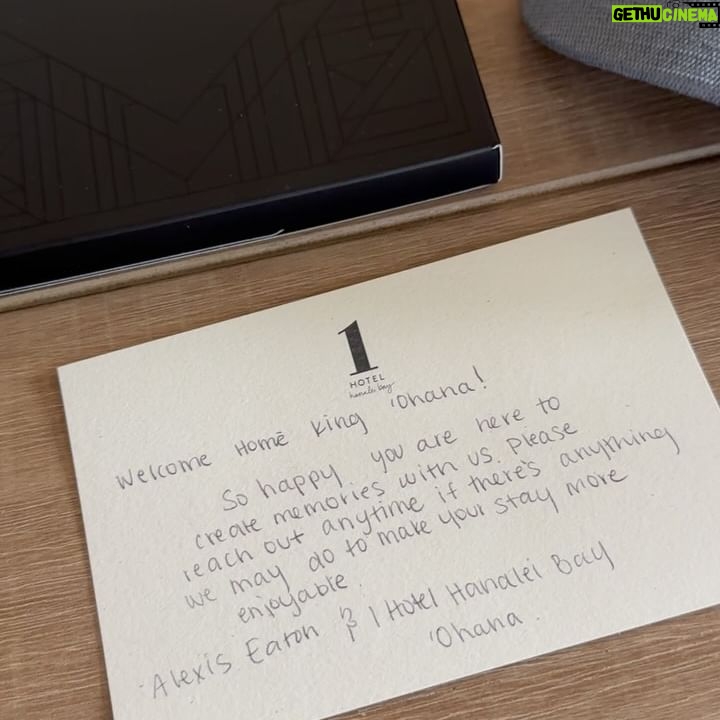 GETHUCINEMA
1
HOTEL
hanalei bay
Welcome Home King 'Ohana!
So happy you are here to
create memories with us. Please
reach out anytime if there's anything
we may do to make your stay more
enjoyable.
Alexis Eaton & 1 Hotel Hanalei Bay
'Ohana.